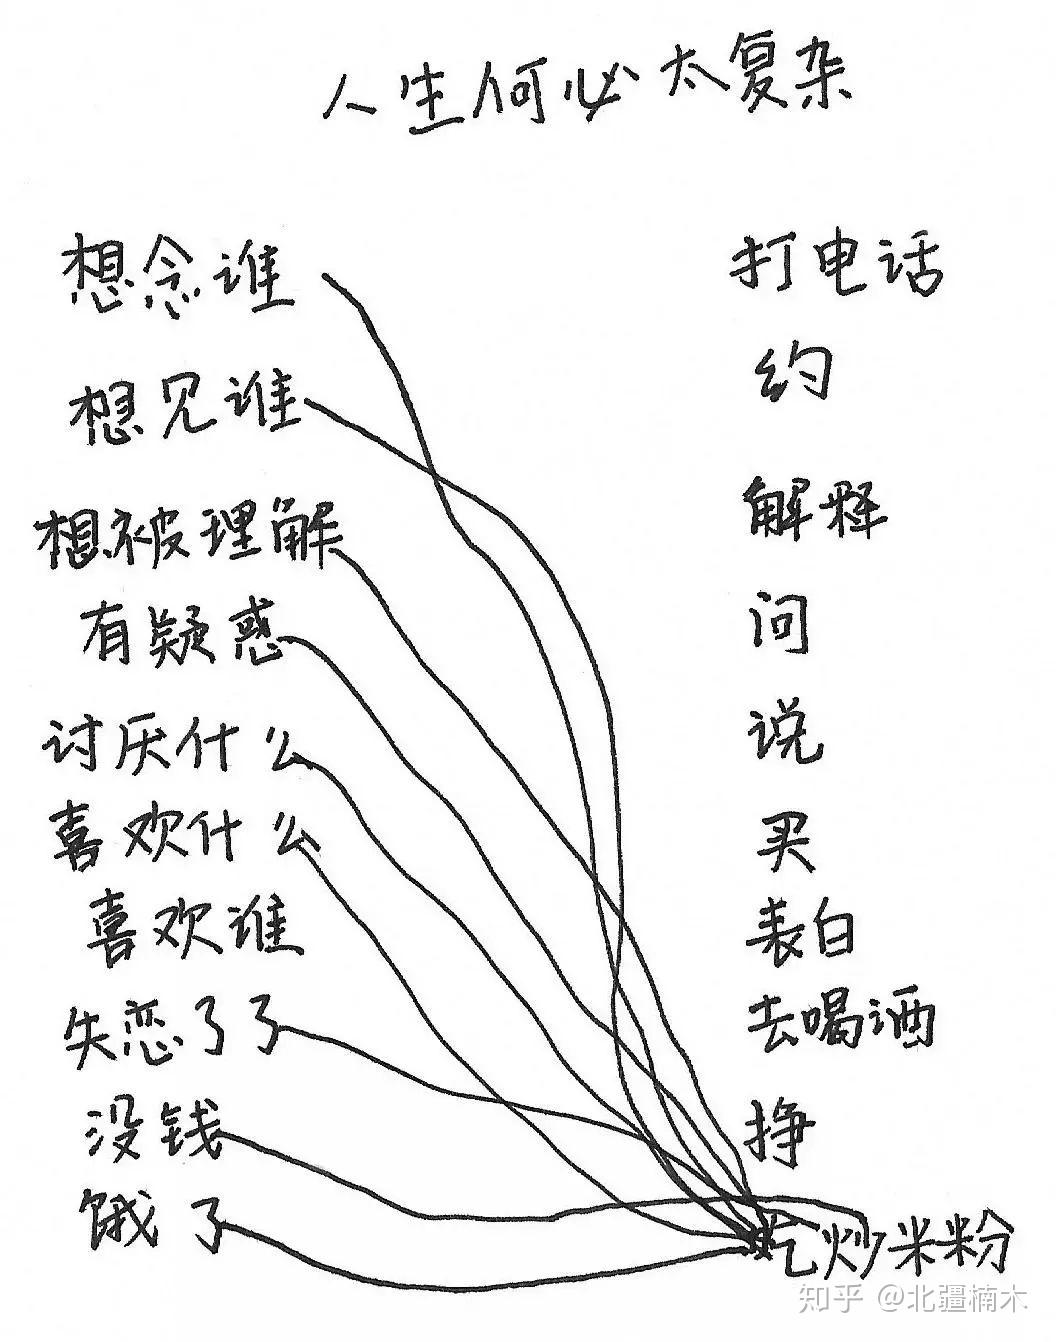 人生何必太复杂
想念谁 打电话
想见谁 约
想被理解 解释
有疑惑 问
讨厌什么 说
喜欢什么 买
喜欢谁 表白
失恋了了 去喝酒
没钱 挣
饿了 吃炒米粉
知乎 @北疆楠木